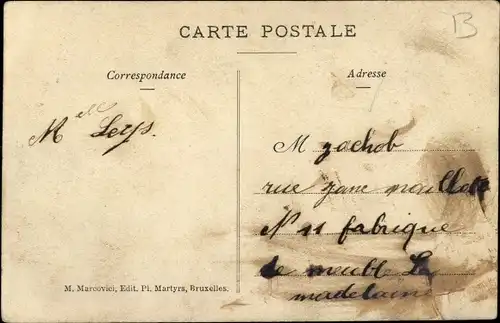 B
CARTE POSTALE
Correspondance
Adresse
Melle Leys.
M Jachob
rue jane maillote
N 11 fabrique
de meuble La
madelaine
M. Marcovici, Edit. Pl. Martyrs, Bruxelles.